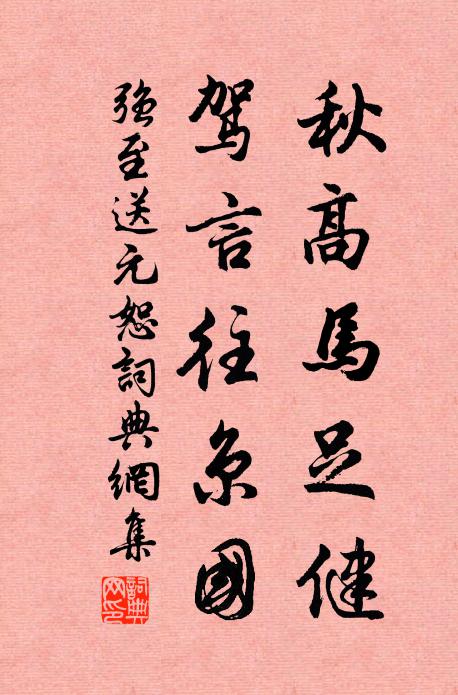 秋高馬足健
駕言往京國
強至送元恕詞典網集
詞典网印